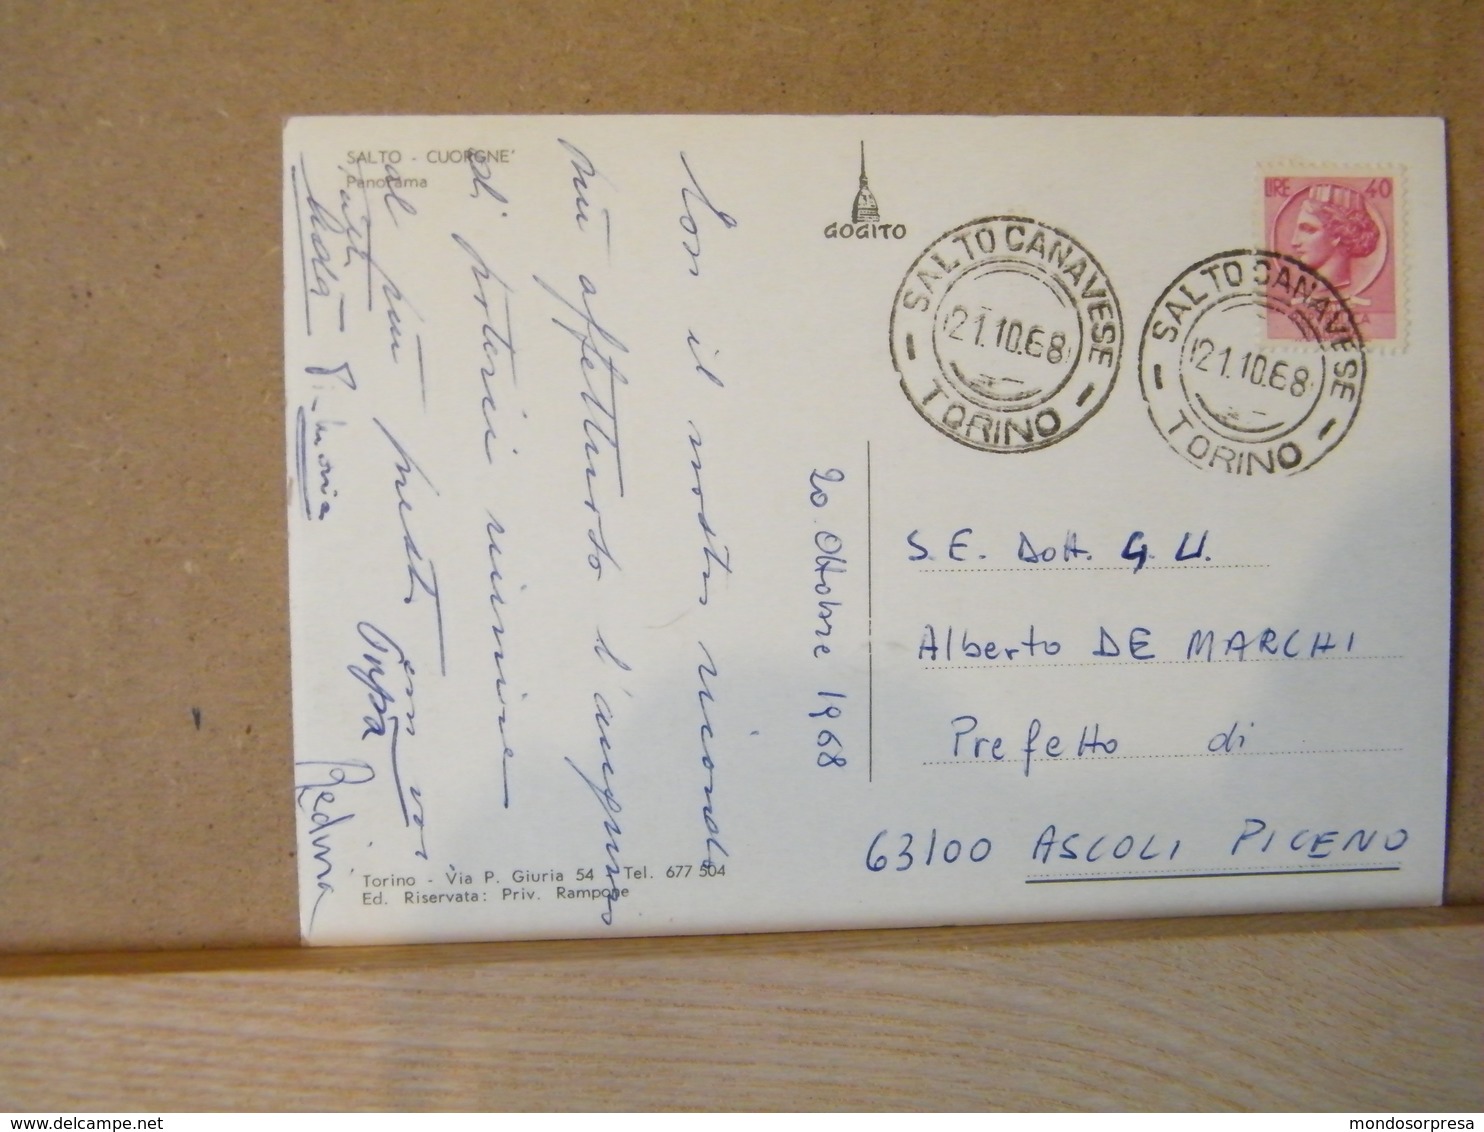 SALTO - CUORGNE'
Panorama
GOGITO
SALTO CANAVESE
21.10.68
TORINO
SALTO CANAVESE
21.10.68
TORINO
LIRE 40
20. Ottobre 1968
Con il nostro ricordo
più affettuoso l'augurio
di poterci riunire
al più presto con voi
tutti
S.E. Dott. G. U.
Alberto DE MARCHI
Prefetto di
63100 ASCOLI PICENO
Torino - Via P. Giuria 54 - Tel. 677 504
Ed. Riservata: Priv. Rampone
www.delcampe.net
mondosorpresa